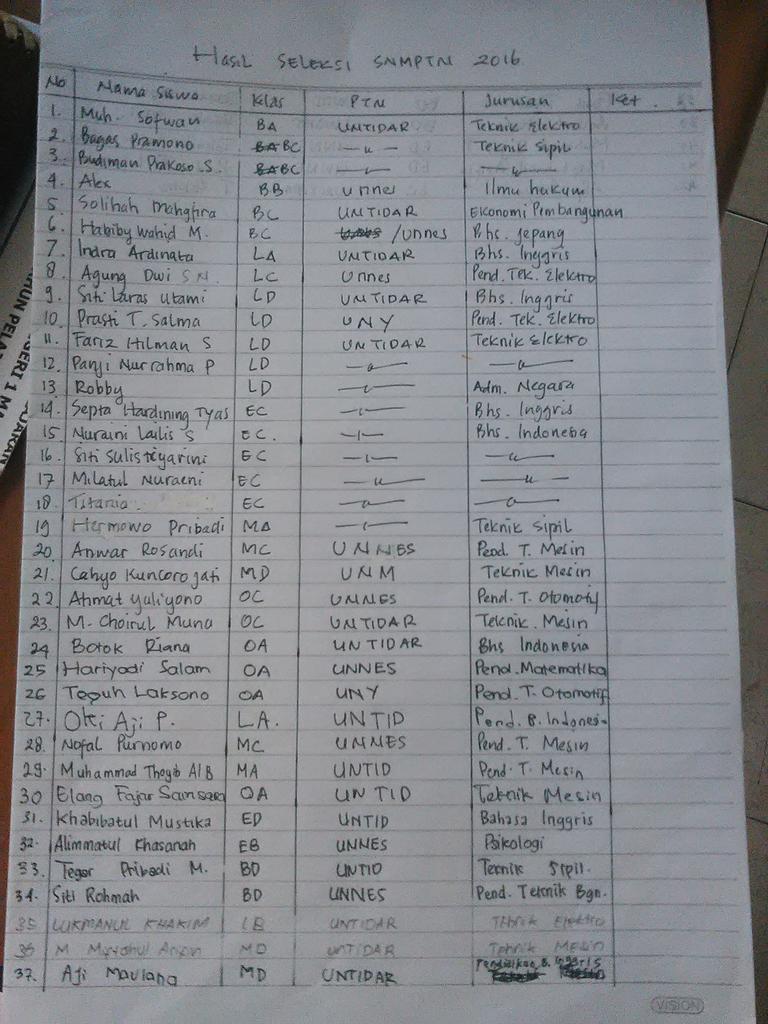 Hasil SELEKSI SNMPTN 2016
No Nama Siswa Klas PTN Jurusan Ket.
1. Muh. Sofwan BA UNTIDAR Teknik Elektro
2. Bagas Pramono BC —"— Teknik Sipil
3. Budiman Prakoso S. BC —"— —"—
4. Alex BB Unnes Ilmu hukum
5. Solihah Mahghira BC UNTIDAR Ekonomi Pembangunan
6. Habiby Wahid M. BC /Unnes Bhs. Jepang
7. Indra Ardinata LA UNTIDAR Bhs. Inggris
8. Agung Dwi S N. LC Unnes Pend. Tek. Elektro
9. Siti Laras Utami LD UNTIDAR Bhs. Inggris
10. Prasti T. Salma LD UNY Pend. Tek. Elektro
11. Fariz Hilman S LD UNTIDAR Teknik Elektro
12. Panji Nurrahma P LD —"— —"—
13 Robby LD —"— Adm. Negara
14. Septa Hardining Tyas EC —"— Bhs. Inggris
15 Nuraini Lailis S EC. —"— Bhs. Indonesia
16. Siti Sulistiyarini EC —"— —"—
17 Milatul Nuraeni EC —"— —"—
18. Titania EC —"— —"—
19 Hermowo Pribadi MA —"— Teknik Sipil
20. Anwar Rosandi MC UNNES Pend. T. Mesin
21. Cahyo Kuncoro jati MD UNM Teknik Mesin
22. Ahmat Yuliyono OC UNNES Pend. T. Otomotif
23. M. Choirul Muna OC UNTIDAR Teknik. Mesin
24 Botok Riana OA UNTIDAR Bhs Indonesia
25 Hariyadi Salam OA UNNES Pend. Matematika
26 Teguh Laksono OA UNY Pend. T. Otomotif
27. Oki Aji P. LA. UNTID Pend. B. Indonesia
28. Nofal Purnomo MC UNNES Pend. T. Mesin
29. Muhammad Thoyib Al B MA UNTID Pend. T. Mesin
30 Elang Fajar Samsara OA UNTID Teknik Mesin
31. Khabibatul Mustika ED UNTID Bahasa Inggris
32. Alimmatul Khasanah EB UNNES Psikologi
33. Tegar Pribadi M. BD UNTID Teknik Sipil.
34. Siti Rohmah BD UNNES Pend. Teknik Bgn.
35 LUKMANUL KHAKIM LB UNTIDAR Teknik Elektro
36 M MD UNTIDAR Teknik Mesin
37. Aji Maulana MD UNTIDAR Pendidikan B. Inggris
VISION